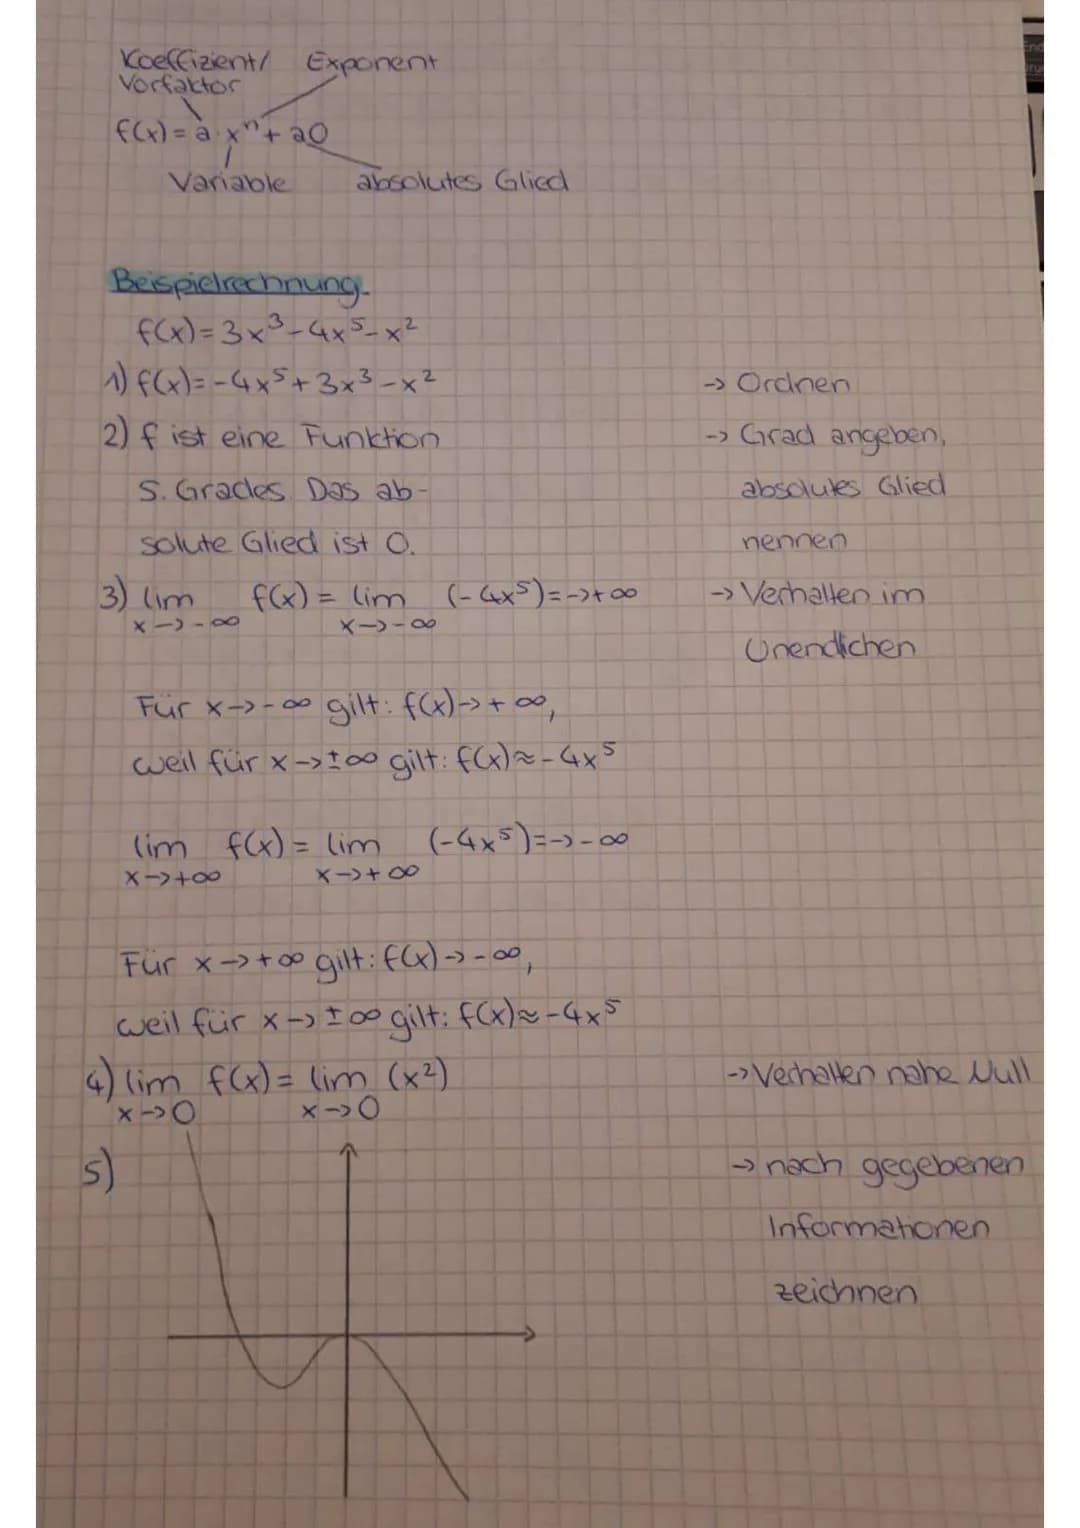 Koeffizient/ Exponent
Vorfaktor
f(x) = a · xⁿ + a0
Variable absolutes Glied
Beispielrechnung
f(x) = 3x³ - 4x⁵ - x²
1) f(x) = -4x⁵ + 3x³ - x² -> Ordnen
2) f ist eine Funktion -> Grad angeben,
5. Grades. Das ab- absolutes Glied
solute Glied ist 0. nennen
3) lim f(x) = lim (-4x⁵) = -> + ∞ -> Verhalten im
x -> - ∞ x -> - ∞
Unendlichen
Für x -> - ∞ gilt: f(x) -> + ∞,
weil für x -> ± ∞ gilt: f(x) ≈ -4x⁵
lim f(x) = lim (-4x⁵) = -> - ∞
x -> + ∞ x -> + ∞
Für x -> + ∞ gilt: f(x) -> - ∞,
weil für x -> ± ∞ gilt: f(x) ≈ -4x⁵
4) lim f(x) = lim (x²) -> Verhalten nahe Null
x -> 0 x -> 0
5) -> nach gegebenen
Informationen
zeichnen